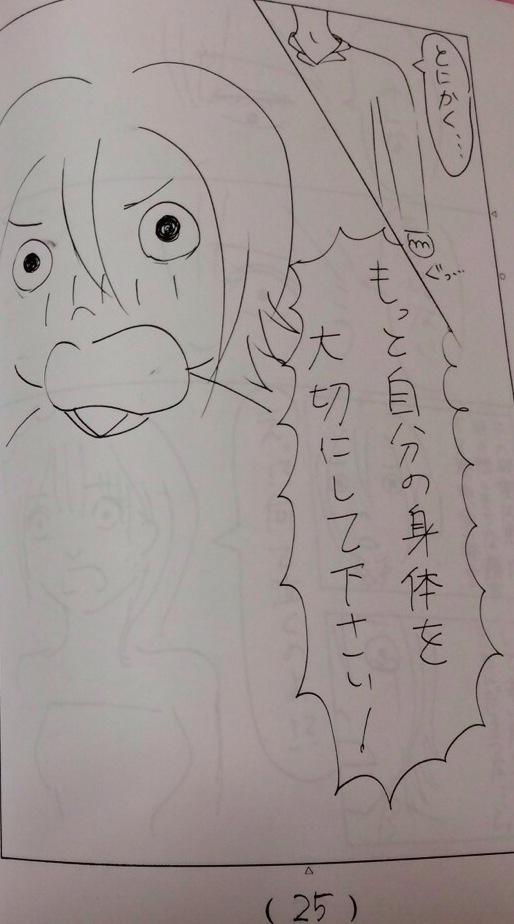 とにかく…
ぐっ…
もっと自分の身体を
大切にして下さいー
(25)